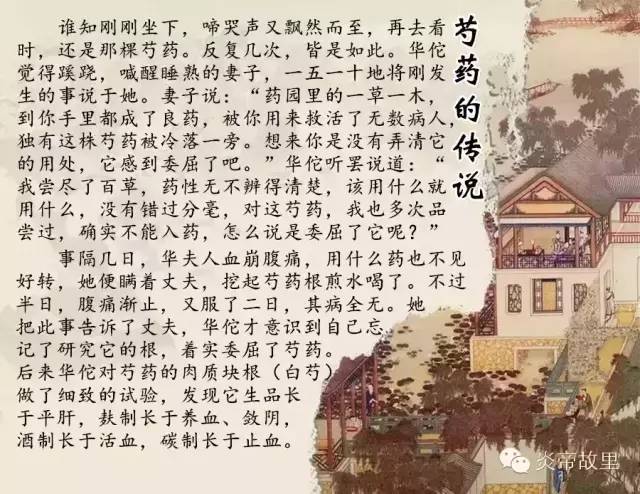 芍药的传说
谁知刚刚坐下，啼哭声又飘然而至，再去看
时，还是那棵芍药。反复几次，皆是如此。华佗
觉得蹊跷，喊醒睡熟的妻子，一五一十地将刚发
生的事说于她。妻子说：“药园里的一草一木，
到你手里都成了良药，被你用来救活了无数病人，
独有这株芍药被冷落一旁。想来你是没有弄清它
的用处，它感到委屈了吧。”华佗听罢说道：“
我尝尽了百草，药性无不辨得清楚，该用什么就
用什么，没有错过分毫，对这芍药，我也多次品
尝过，确实不能入药，怎么说是委屈了它呢？”
事隔几日，华夫人血崩腹痛，用什么药也不见
好转，她便瞒着丈夫，挖起芍药根煎水喝了。不过
半日，腹痛渐止，又服了二日，其病全无。她
把此事告诉了丈夫，华佗才意识到自己忘
记了研究它的根，着实委屈了芍药。
后来华佗对芍药的肉质块根（白芍）
做了细致的试验，发现它生品长
于平肝，麸制长于养血、敛阴，
酒制长于活血，碳制长于止血。
炎帝故里